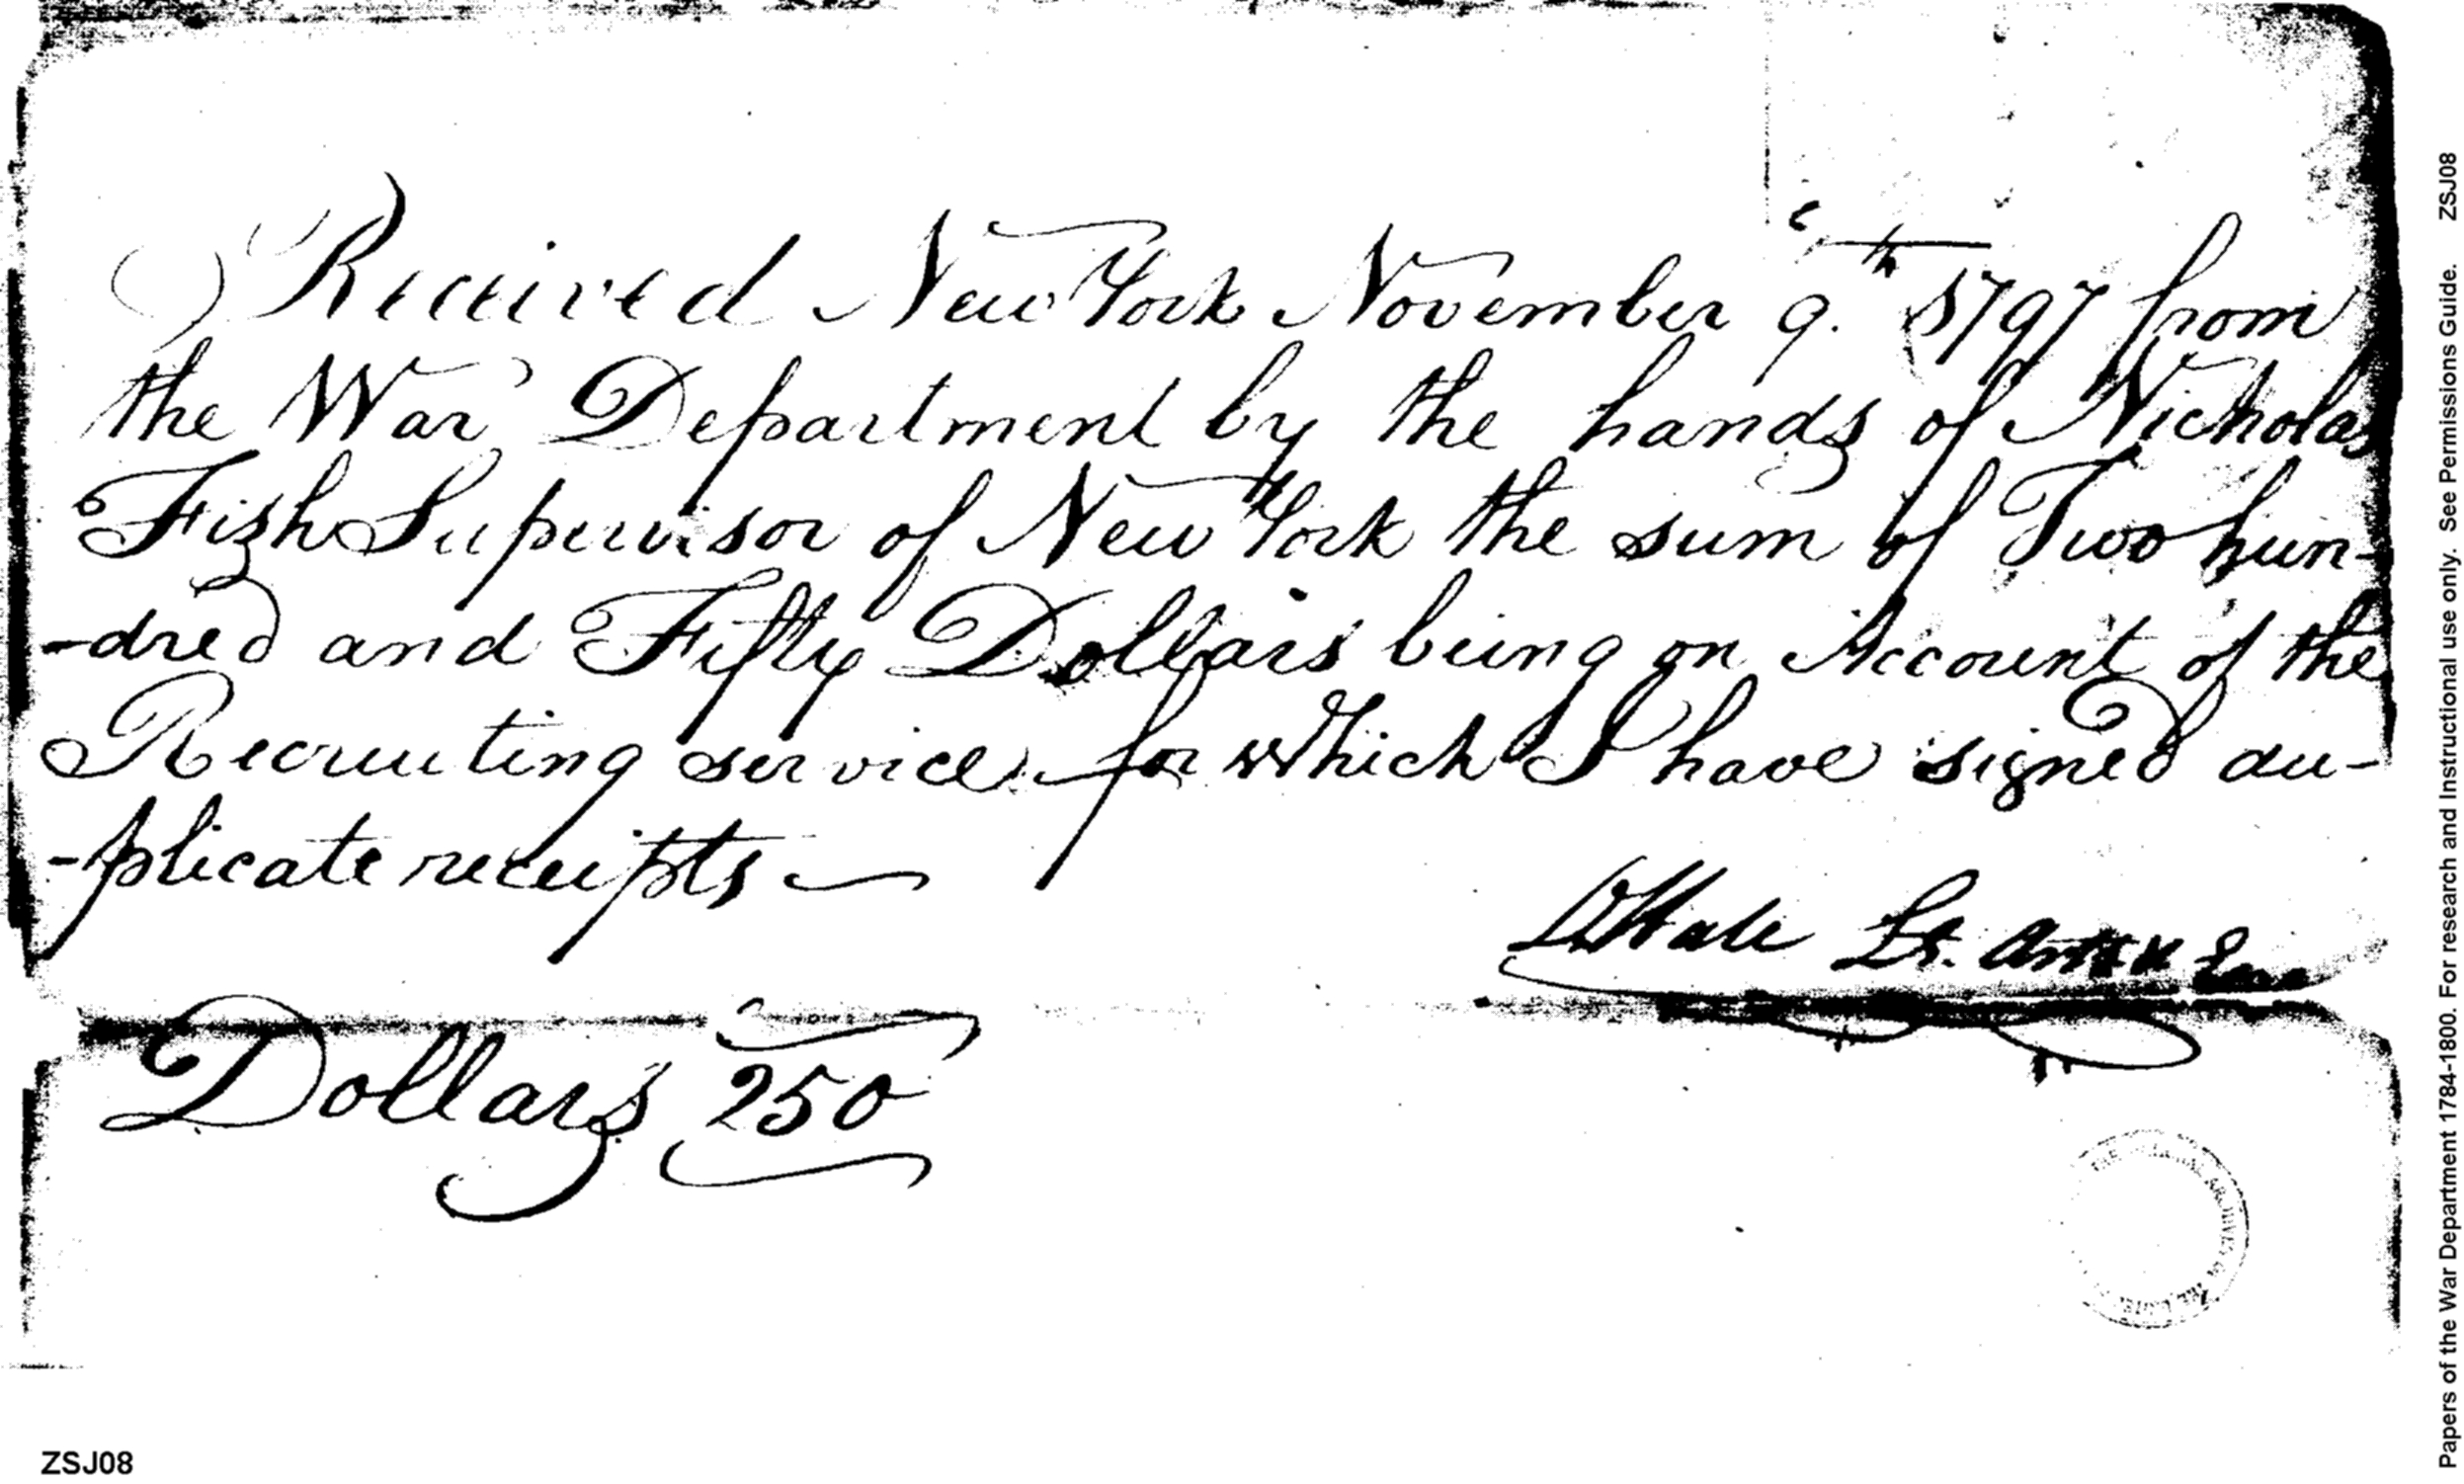 Received New York November 9.th 1797 from
the War Department by the hands of Nicholas
Fish Supervisor of New York the sum of Two hun-
-dred and Fifty Dollars being on Account of the
Recruiting service for which I have signed du-
-plicate receipts
Hale Lt.
Dollars 250
ZSJ08
Papers of the War Department 1784-1800. For research and instructional use only. See Permissions Guide. ZSJ08